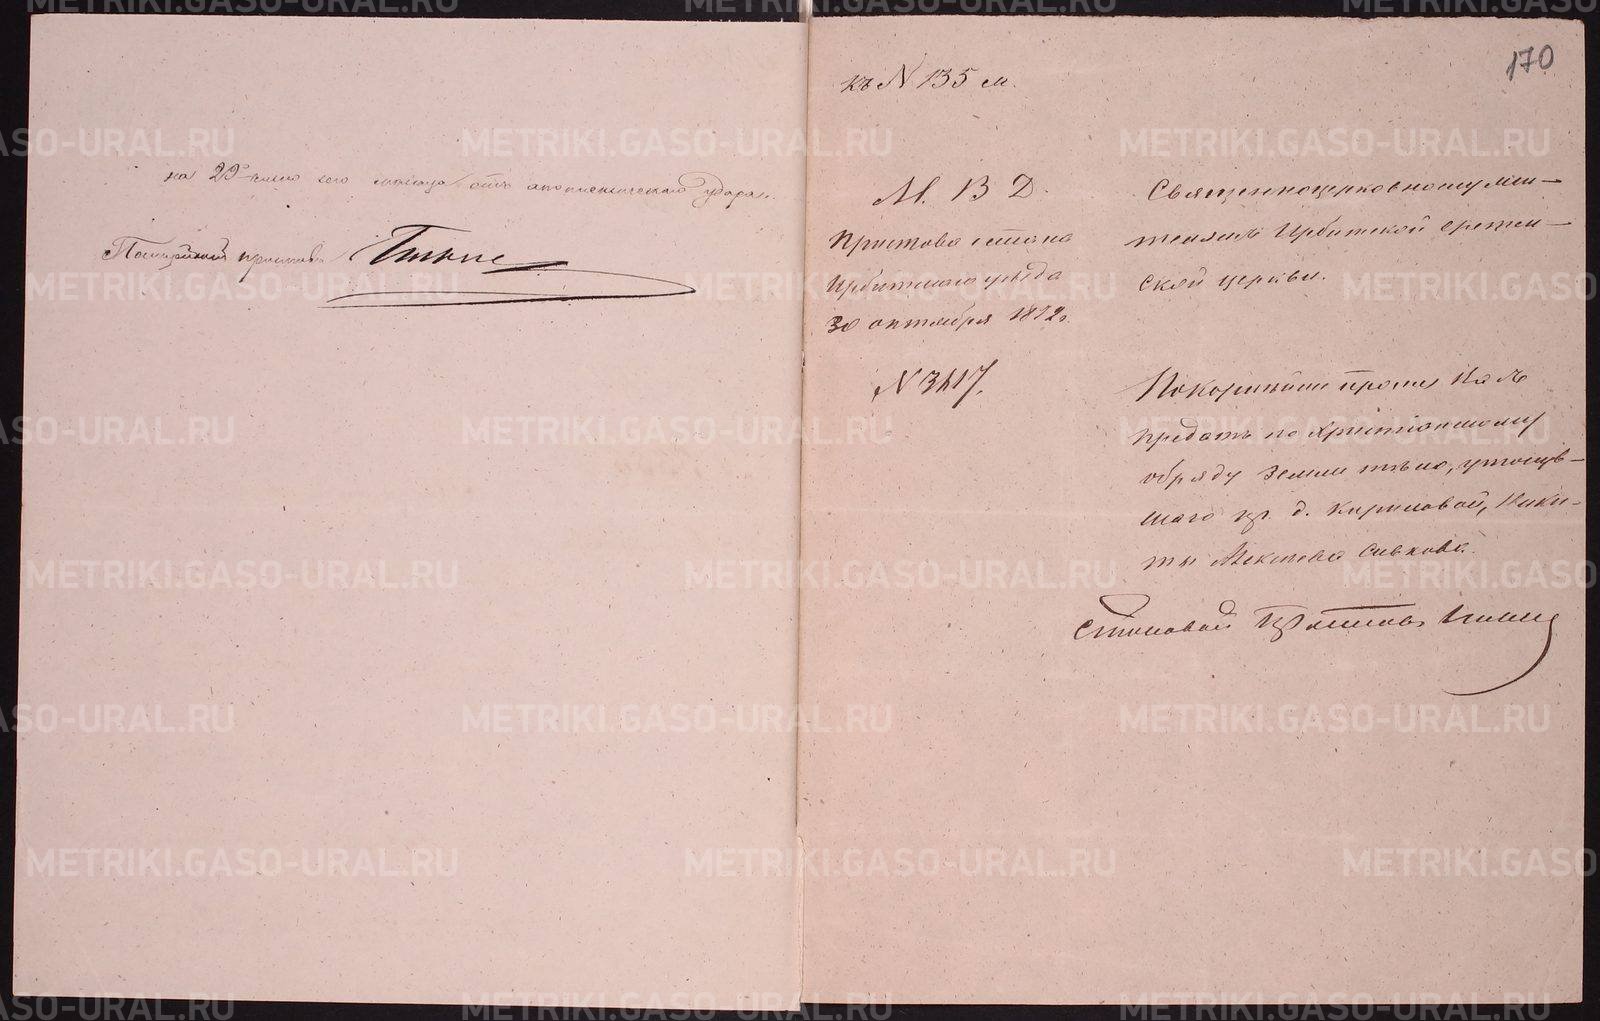 на 29 число сего месяца, отъ апоплексическаго удара.
Полицейский приставъ
170
къ N 135 м.
М. В Д.
Пристава 1 стана
Ирбитскаго уѣзда
30 октября 1872 г.
N 3417.
Священноцерковнослужи-
телямъ Ирбитской Сретен-
ской церкви.
Покорнѣйше прошу Васъ
предать по Христіанскому
обряду земли тѣло, утонув-
шаго кр. д. Кириловой, Ники-
ты Алексѣева Сивкова.
Становой Приставъ
METRIKI.GASO-URAL.RU